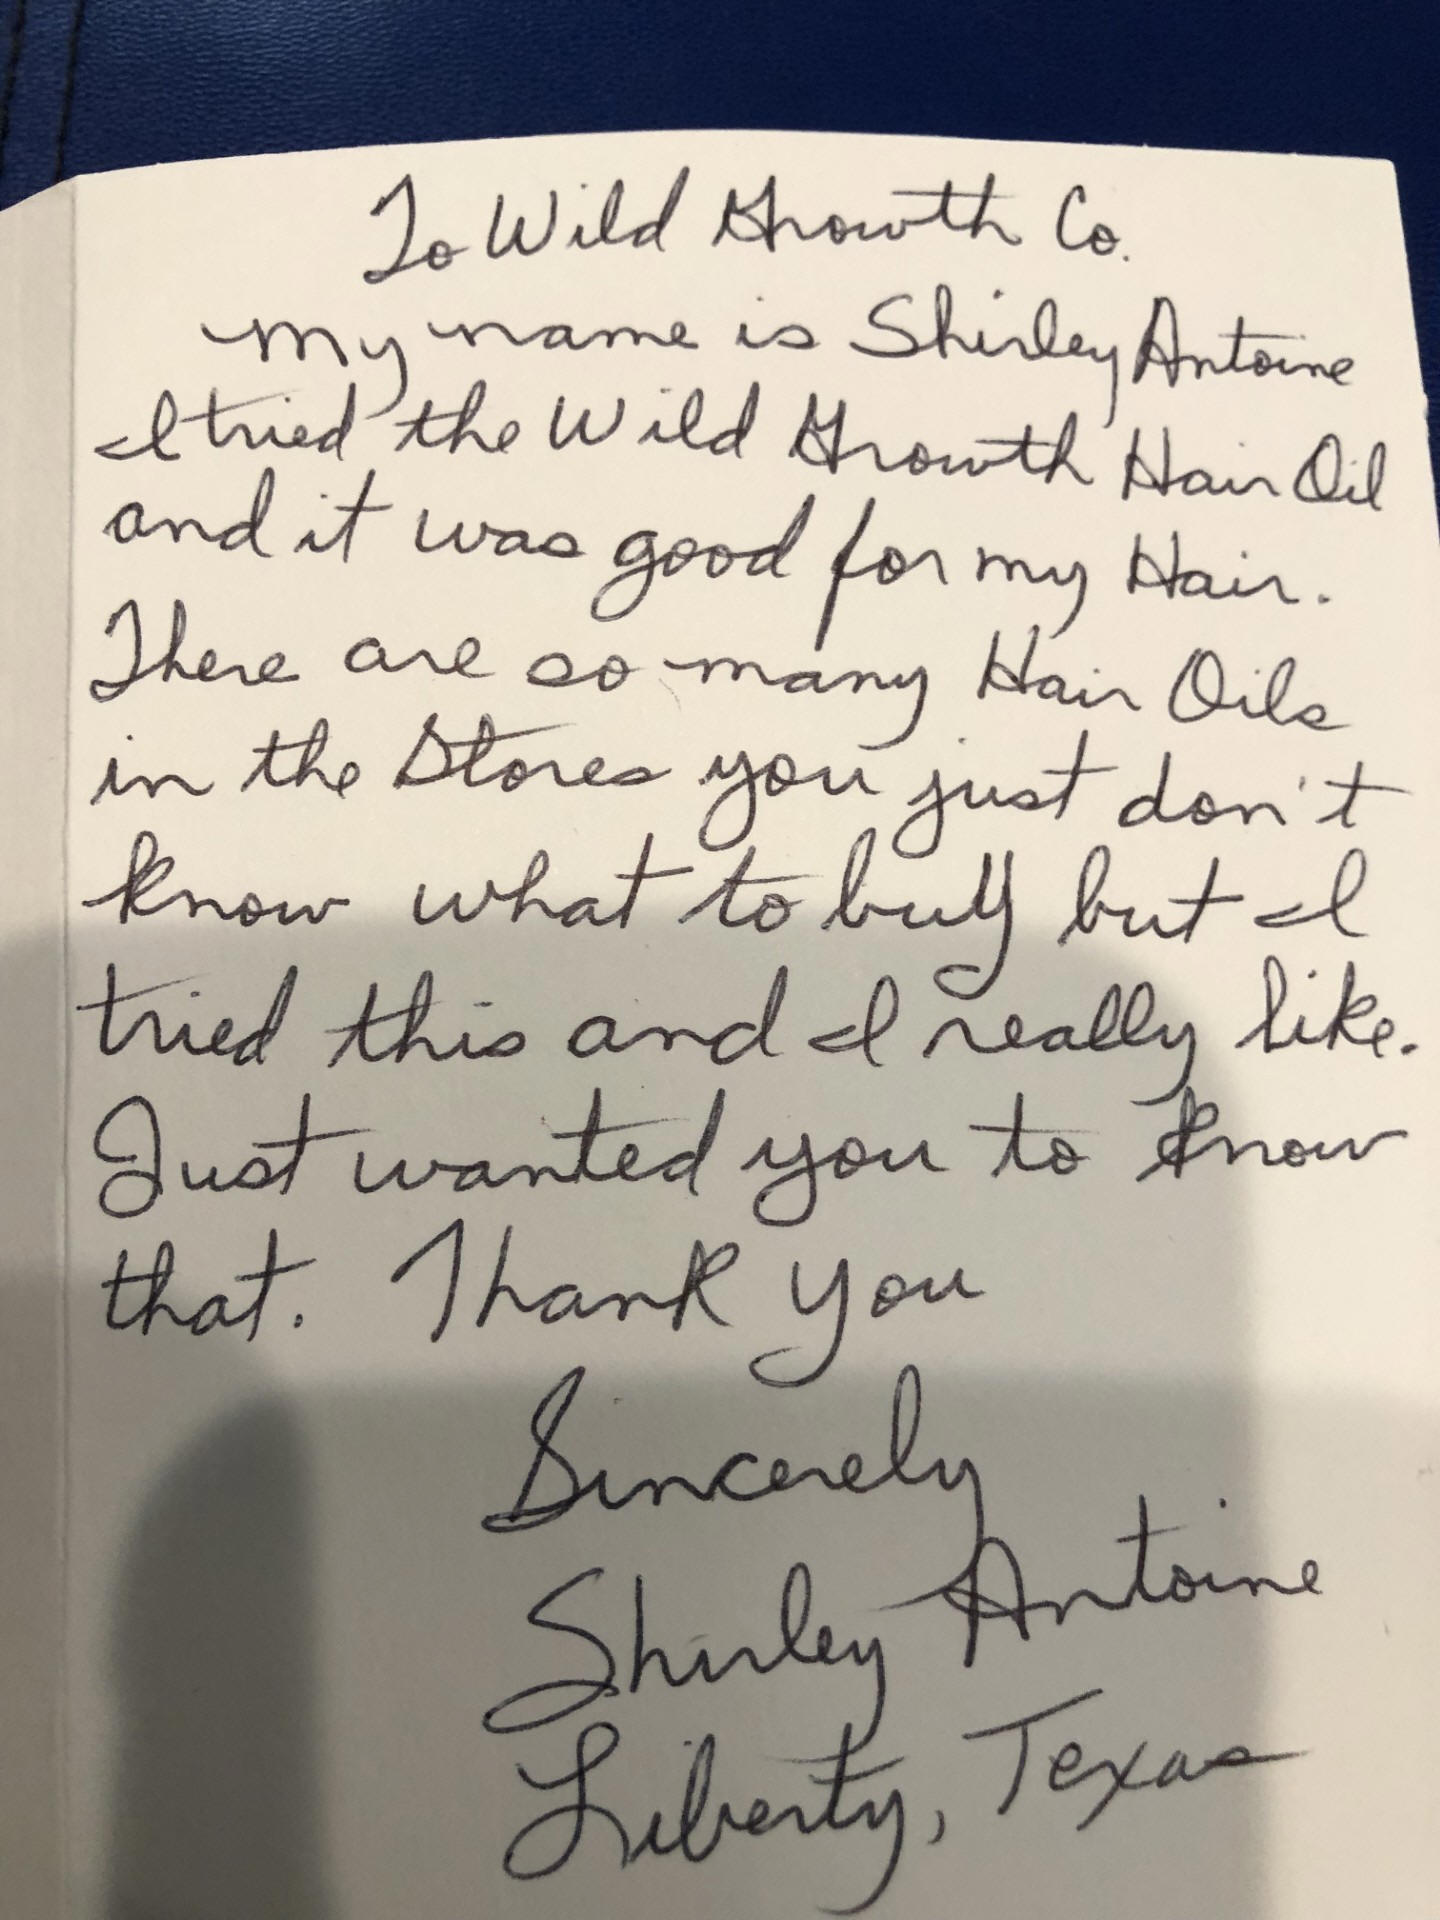 To Wild Growth Co.
My name is Shirley Antoine
I tried the Wild Growth Hair Oil
and it was good for my Hair.
There are so many Hair Oils
in the Stores you just don't
know what to buy but I
tried this and I really like.
Just wanted you to know
that. Thank you
Sincerely
Shirley Antoine
Liberty, Texas